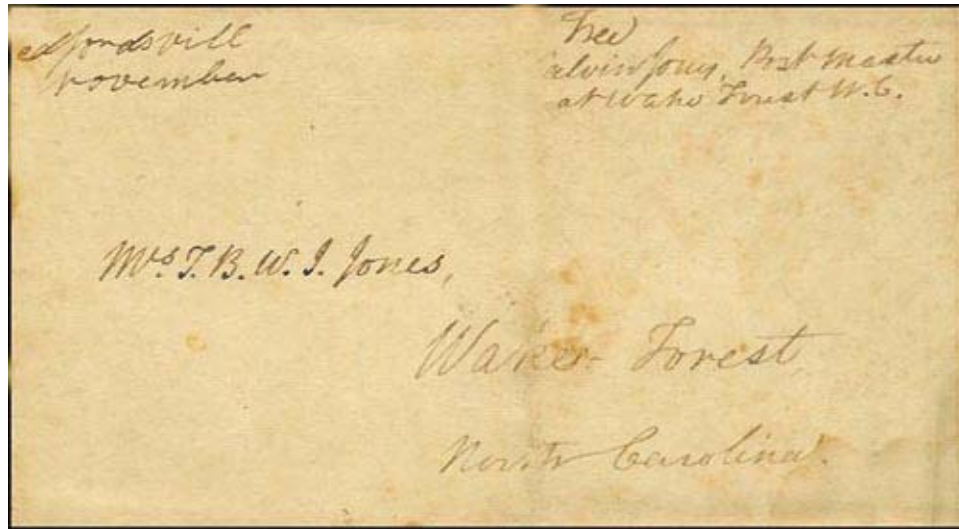 edfordsvill
November
Free
alvin Jones, Post Master
at Wake Forest N.C.
Mrs T. B. W. I. Jones,
Wake Forest
North Carolina.